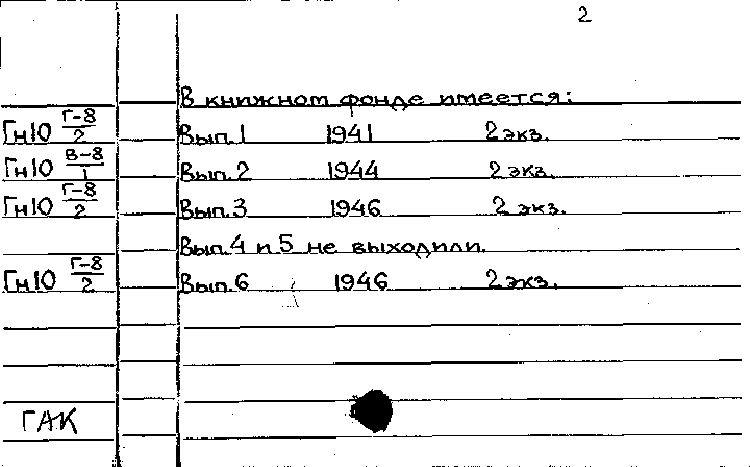 2
В книжном фонде имеется:
Гн10 Г-8/2 Вып.1 1941 2 экз.
Гн10 В-8/1 Вып.2 1944 2 экз.
Гн10 Г-8/2 Вып.3 1946 2 экз.
Вып.4 и 5 не выходили.
Гн10 Г-8/2 Вып.6 1946 2 экз.
ГАК